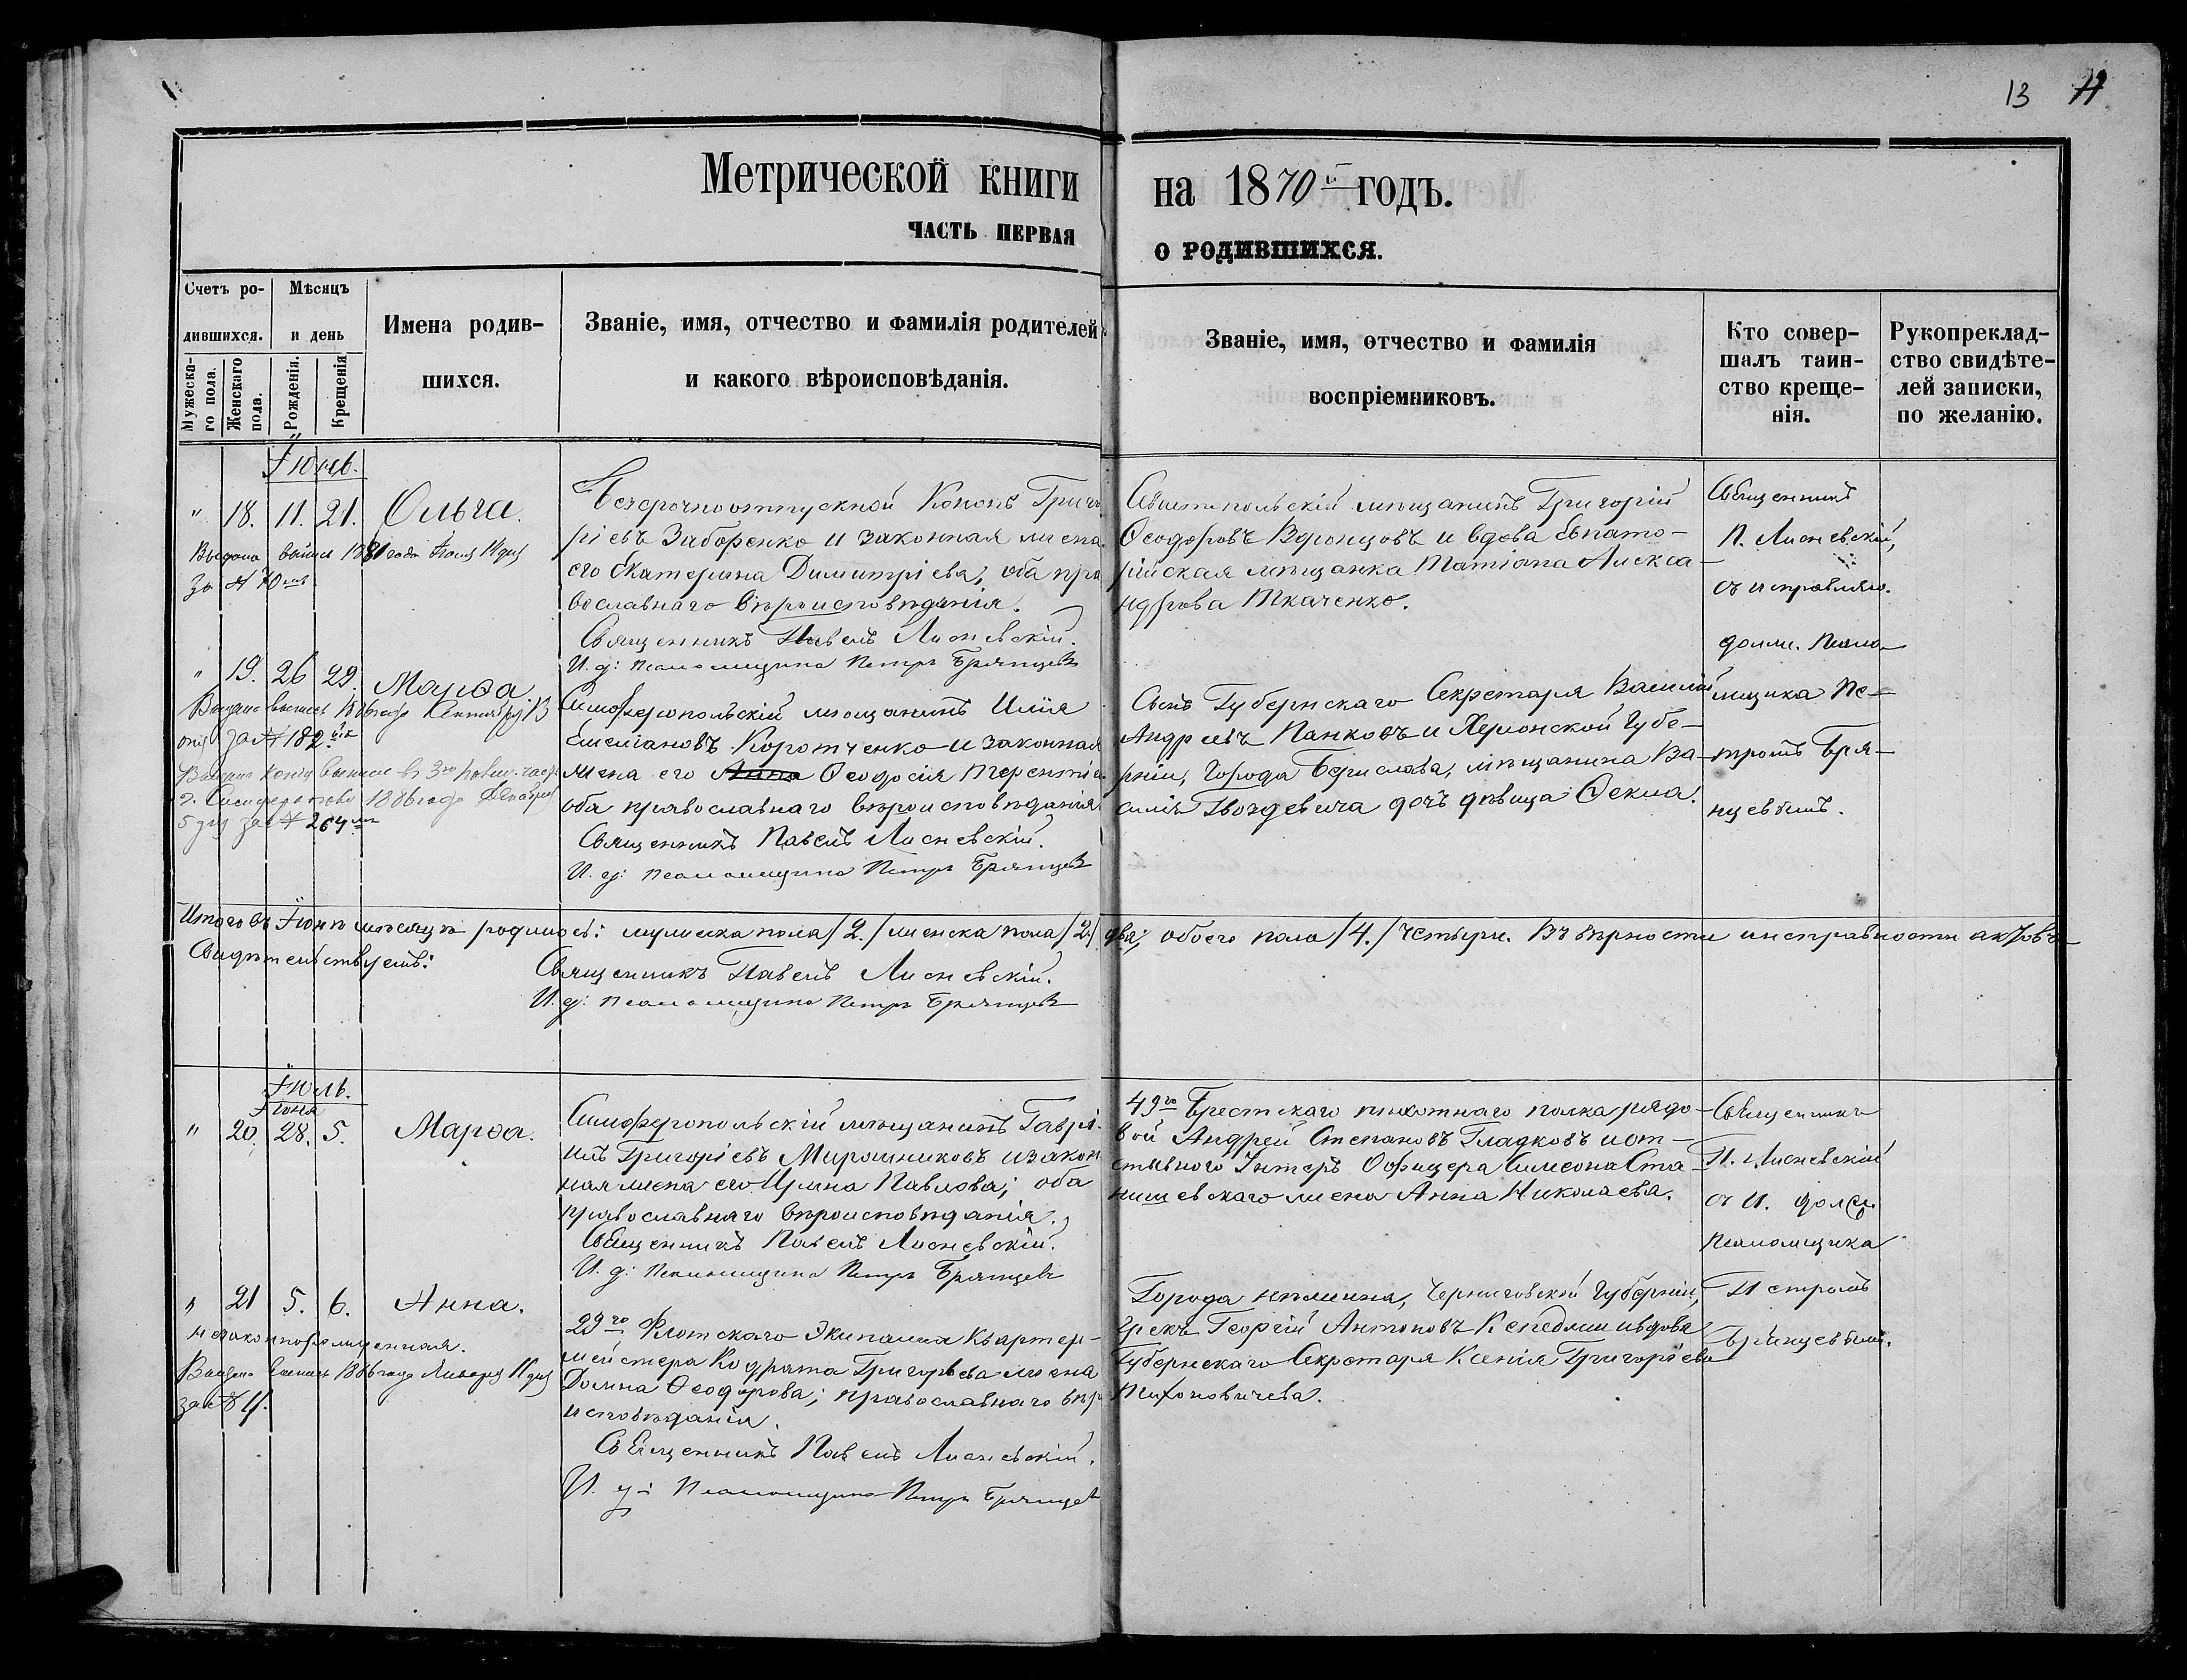 13
Метрической книги на 1870й годъ.
часть первая о родившихся.
Счетъ ро-
дившихся.
Мужеска-
го пола.
Женскаго
пола.
Мѣсяцъ
и день
Рожденія.
Крещенія
Имена родив-
шихся.
Званіе, имя, отчество и фамилія родителей,
и какого вѣроисповѣданія.
Званіе, имя, отчество и фамилія
воспріемниковъ.
Кто совер-
шалъ таин-
ство креще-
нія.
Рукоприклад-
ство свидѣте-
лей записки,
по желанію.
Іюнь.
" 18. 11. 21. Ольга.
Выдана выпись 1881 года
за № 70
Безсрочноотпускной Кононъ Григо
ріевъ Заборенко и законная жена
его Екатерина Димитріева; оба пра
вославнаго вѣроисповѣданія.
Священникъ Павелъ Лисневскій.
И. д: псаломщика Петръ Брянцевъ
Севастопольскій мѣщанинъ Григорій
Ѳеодоровъ Воронцовъ и вдова Евпато-
рійская мѣщанка Татіана Алекса-
ндрова Ткаченко.
Священникъ
П. Лисневскій,
съ исправляю.
долж. псало-
мщика Пе-
тромъ Бря-
нцевымъ.
" 19. 26 29. Марѳа
Выдана выпись 1886 года Сентября 13
дня за № 182
Выдана копія выписи въ 3ю полиц. часть
г. Симферополя 1886 года Декабря
5 дня за № 264
Симферопольскій мѣщанинъ Илія
Емеліановъ Коротченко и законная
жена его Анна Ѳеодосія Терентіе
оба православнаго вѣроисповѣданія
Священникъ Павелъ Лисневскій.
И. д: псаломщика Петръ Брянцевъ
Сынъ Губернскаго Секретаря Василій
Андреевъ Панковъ и Херсонской Губе-
рніи, города Берислава, мѣщанина Ва-
силія Гвоздевича дочь дѣвица Ѳекла.
Итого въ Іюнѣ мѣсяцѣ родилось: мужеска пола /2./ женска пола /2./ два; обоего пола /4./ четыре. Въ вѣрности и исправности актовъ
Свидѣтельствуемъ:
Священникъ Павелъ Лисневскій.
И. д: псаломщика Петръ Брянцевъ
Іюль.
Іюня
" 20. 28. 5. Марѳа.
Симферопольскій мѣщанинъ Гаврі-
илъ Григоріевъ Мирошниковъ и закон
ная жена его Ирина Павлова; оба
православнаго вѣроисповѣданія.
Священникъ Павелъ Лисневскій.
И. д: псаломщика Петръ Брянцевъ
49го Брестскаго пѣхотнаго полка рядо-
вой Андрей Степановъ Гладковъ и от-
ставного Унтеръ Офицера Симеона Ста-
нишевскаго жена Анна Николаева.
Священникъ
П. Лисневскій
съ и. долж.
псаломщика
Петромъ
Брянцевымъ.
" 21 5. 6. Анна.
незаконнорожденная.
Выдана выпись 1886 года Января 11 дня
за № 4.
29го Флотскаго Экипажа Квартер-
мейстера Кодрата Григорьева жена
Домна Ѳеодорова; православнаго вѣро
исповѣданія.
Священникъ Павелъ Лисневскій.
И. д: Псаломщика Петръ Брянцевъ
Города Нѣжина, Черниговской Губерніи,
грекъ Георгій Антоновъ и вдова
Губернскаго Секретаря Ксенія Григоріева
Тихоновичева.